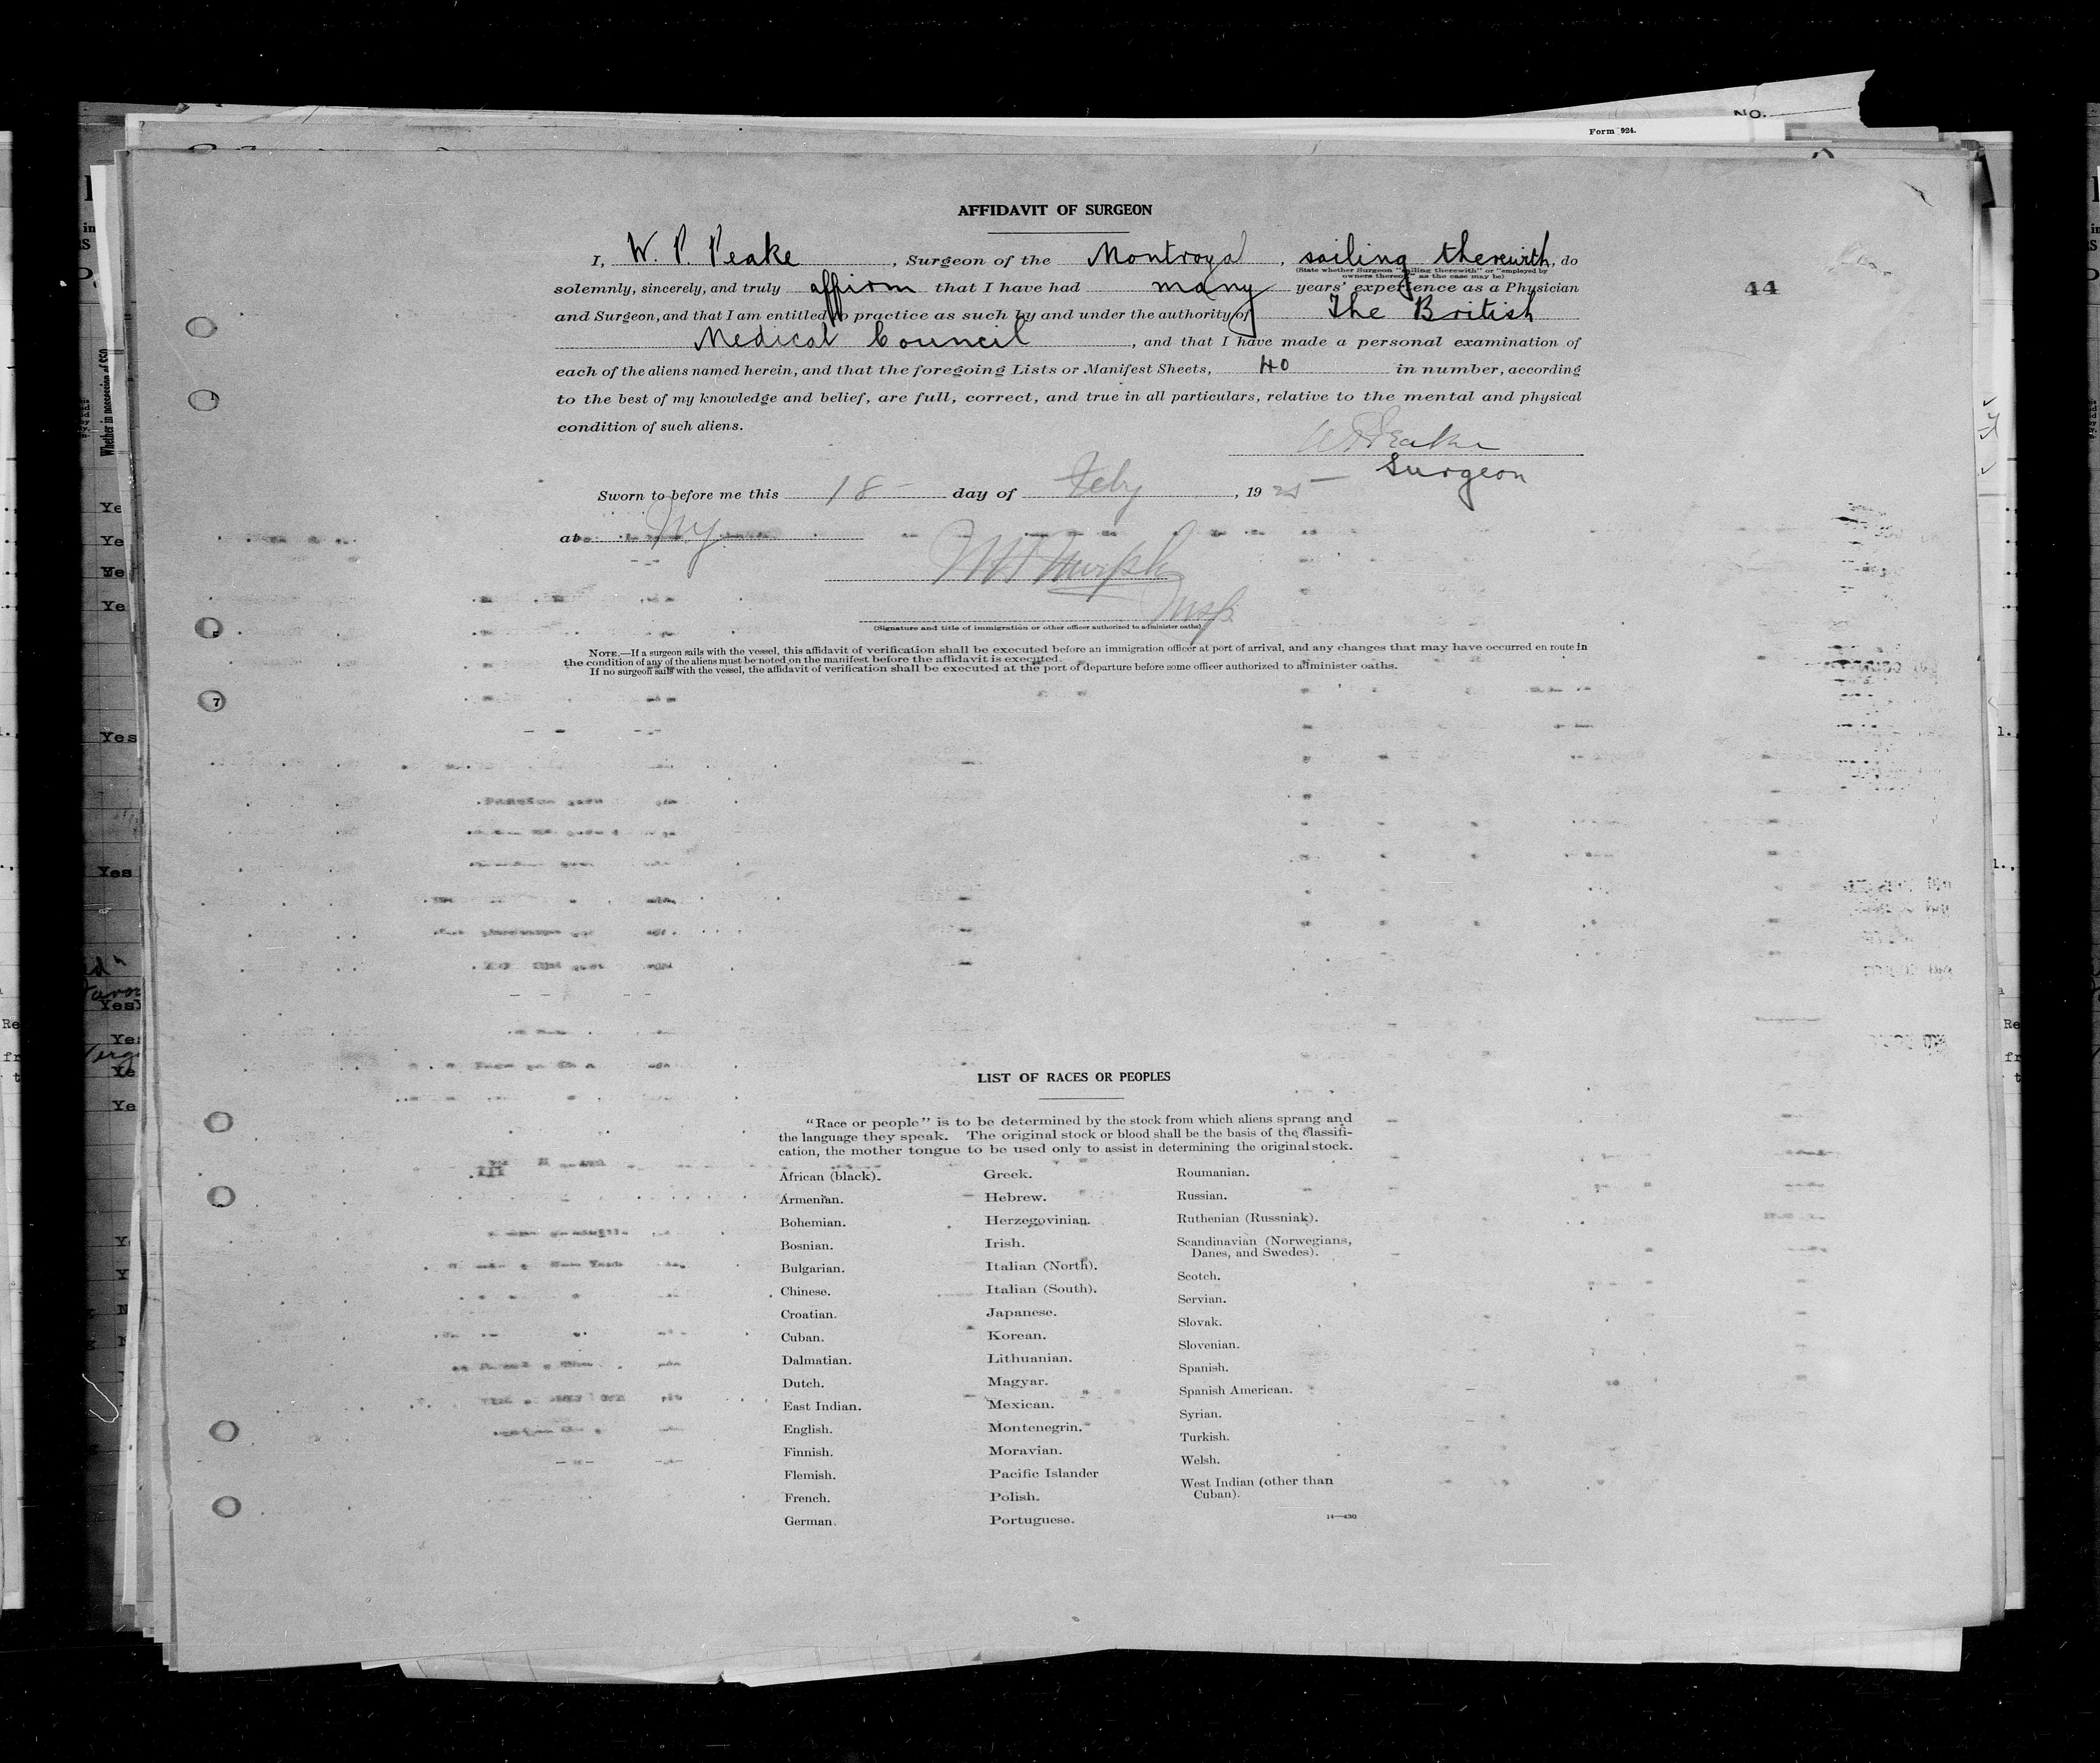 NO.
Form 924.
AFFIDAVIT OF SURGEON
I, W. P. Peake, Surgeon of the Montroyal, sailing therewith, do
(State whether Surgeon "sailing therewith" or "employed by
owners thereof," as the case may be)
solemnly, sincerely, and truly affirm that I have had many years' experience as a Physician
44
and Surgeon, and that I am entitled to practice as such by and under the authority of The British
Medical Council, and that I have made a personal examination of
each of the aliens named herein, and that the foregoing Lists or Manifest Sheets, 40 in number, according
to the best of my knowledge and belief, are full, correct, and true in all particulars, relative to the mental and physical
condition of such aliens.
W P Peake
Surgeon
Sworn to before me this 18 day of Feby, 1925
at NY
Murphy
Insp.
(Signature and title of immigration or other officer authorized to administer oaths)
NOTE.—If a surgeon sails with the vessel, this affidavit of verification shall be executed before an immigration officer at port of arrival, and any changes that may have occurred en route in
the condition of any of the aliens must be noted on the manifest before the affidavit is executed.
If no surgeon sails with the vessel, the affidavit of verification shall be executed at the port of departure before some officer authorized to administer oaths.
LIST OF RACES OR PEOPLES
"Race or people" is to be determined by the stock from which aliens sprang and
the language they speak. The original stock or blood shall be the basis of the classifi-
cation, the mother tongue to be used only to assist in determining the original stock.
African (black).
Armenian.
Bohemian.
Bosnian.
Bulgarian.
Chinese.
Croatian.
Cuban.
Dalmatian.
Dutch.
East Indian.
English.
Finnish.
Flemish.
French.
German.
Greek.
Hebrew.
Herzegovinian.
Irish.
Italian (North).
Italian (South).
Japanese.
Korean.
Lithuanian.
Magyar.
Mexican.
Montenegrin.
Moravian.
Pacific Islander
Polish.
Portuguese.
Roumanian.
Russian.
Ruthenian (Russniak).
Scandinavian (Norwegians,
Danes, and Swedes).
Scotch.
Servian.
Slovak.
Slovenian.
Spanish.
Spanish American.
Syrian.
Turkish.
Welsh.
West Indian (other than
Cuban).
14—430